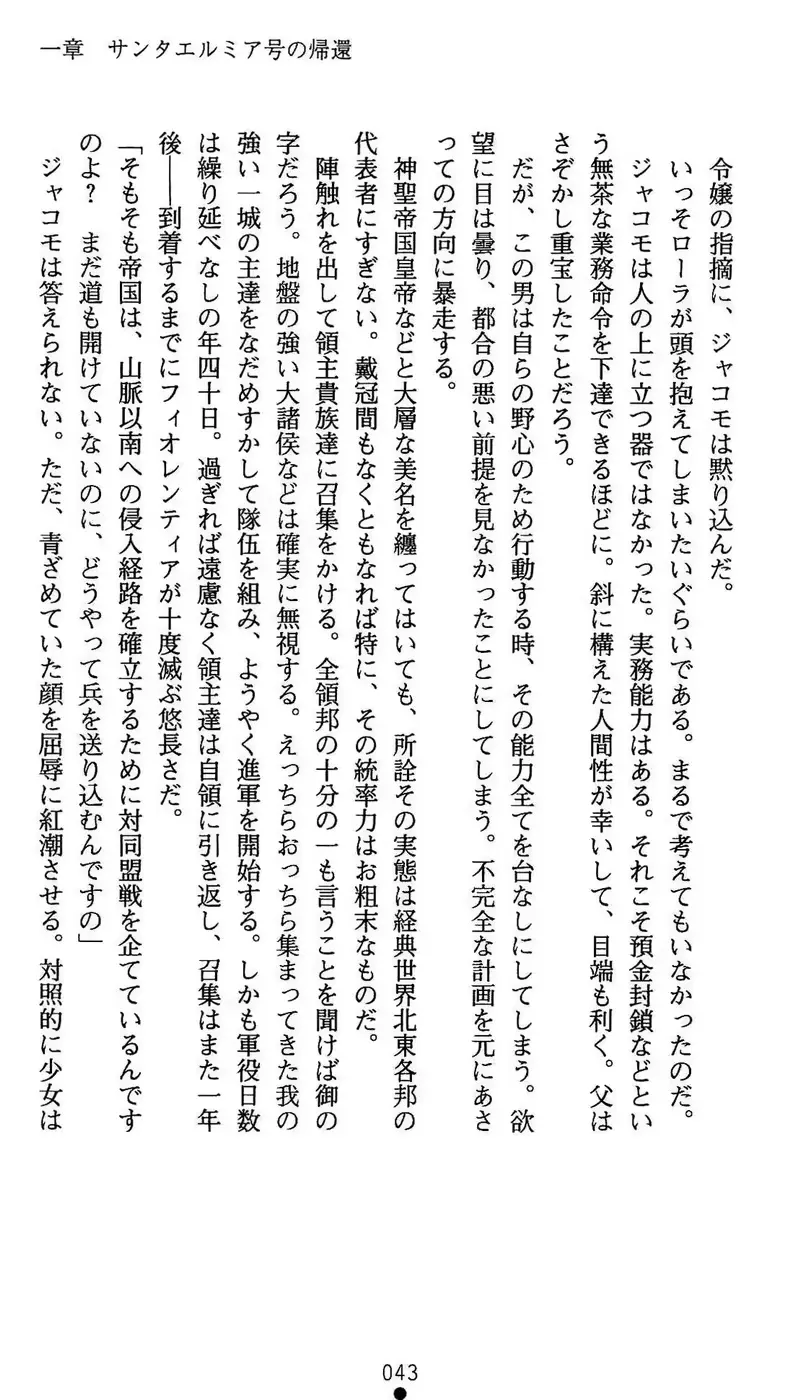 一章　サンタエルミア号の帰還
令嬢の指摘に、ジャコモは黙り込んだ。
いっそローラが頭を抱えてしまいたいぐらいである。まるで考えてもいなかったのだ。
ジャコモは人の上に立つ器ではなかった。実務能力はある。それこそ預金封鎖などとい
う無茶な業務命令を下達できるほどに。斜に構えた人間性が幸いして、目端も利く。父は
さぞかし重宝したことだろう。
だが、この男は自らの野心のため行動する時、その能力全てを台なしにしてしまう。欲
望に目は曇り、都合の悪い前提を見なかったことにしてしまう。不完全な計画を元にあさ
っての方向に暴走する。
神聖帝国皇帝などと大層な美名を纏ってはいても、所詮その実態は経典世界北東各邦の
代表者にすぎない。戴冠間もなくともなれば特に、その統率力はお粗末なものだ。
陣触れを出して領主貴族達に召集をかける。全領邦の十分の一も言うことを聞けば御の
字だろう。地盤の強い大諸侯などは確実に無視する。えっちらおっちら集まってきた我の
強い一城の主達をなだめすかして隊伍を組み、ようやく進軍を開始する。しかも軍役日数
は繰り延べなしの年四十日。過ぎれば遠慮なく領主達は自領に引き返し、召集はまた一年
後――到着するまでにフィオレンティアが十度滅ぶ悠長さだ。
「そもそも帝国は、山脈以南への侵入経路を確立するために対同盟戦を企てているんです
のよ？　まだ道も開けていないのに、どうやって兵を送り込むんですの」
ジャコモは答えられない。ただ、青ざめていた顔を屈辱に紅潮させる。対照的に少女は
043